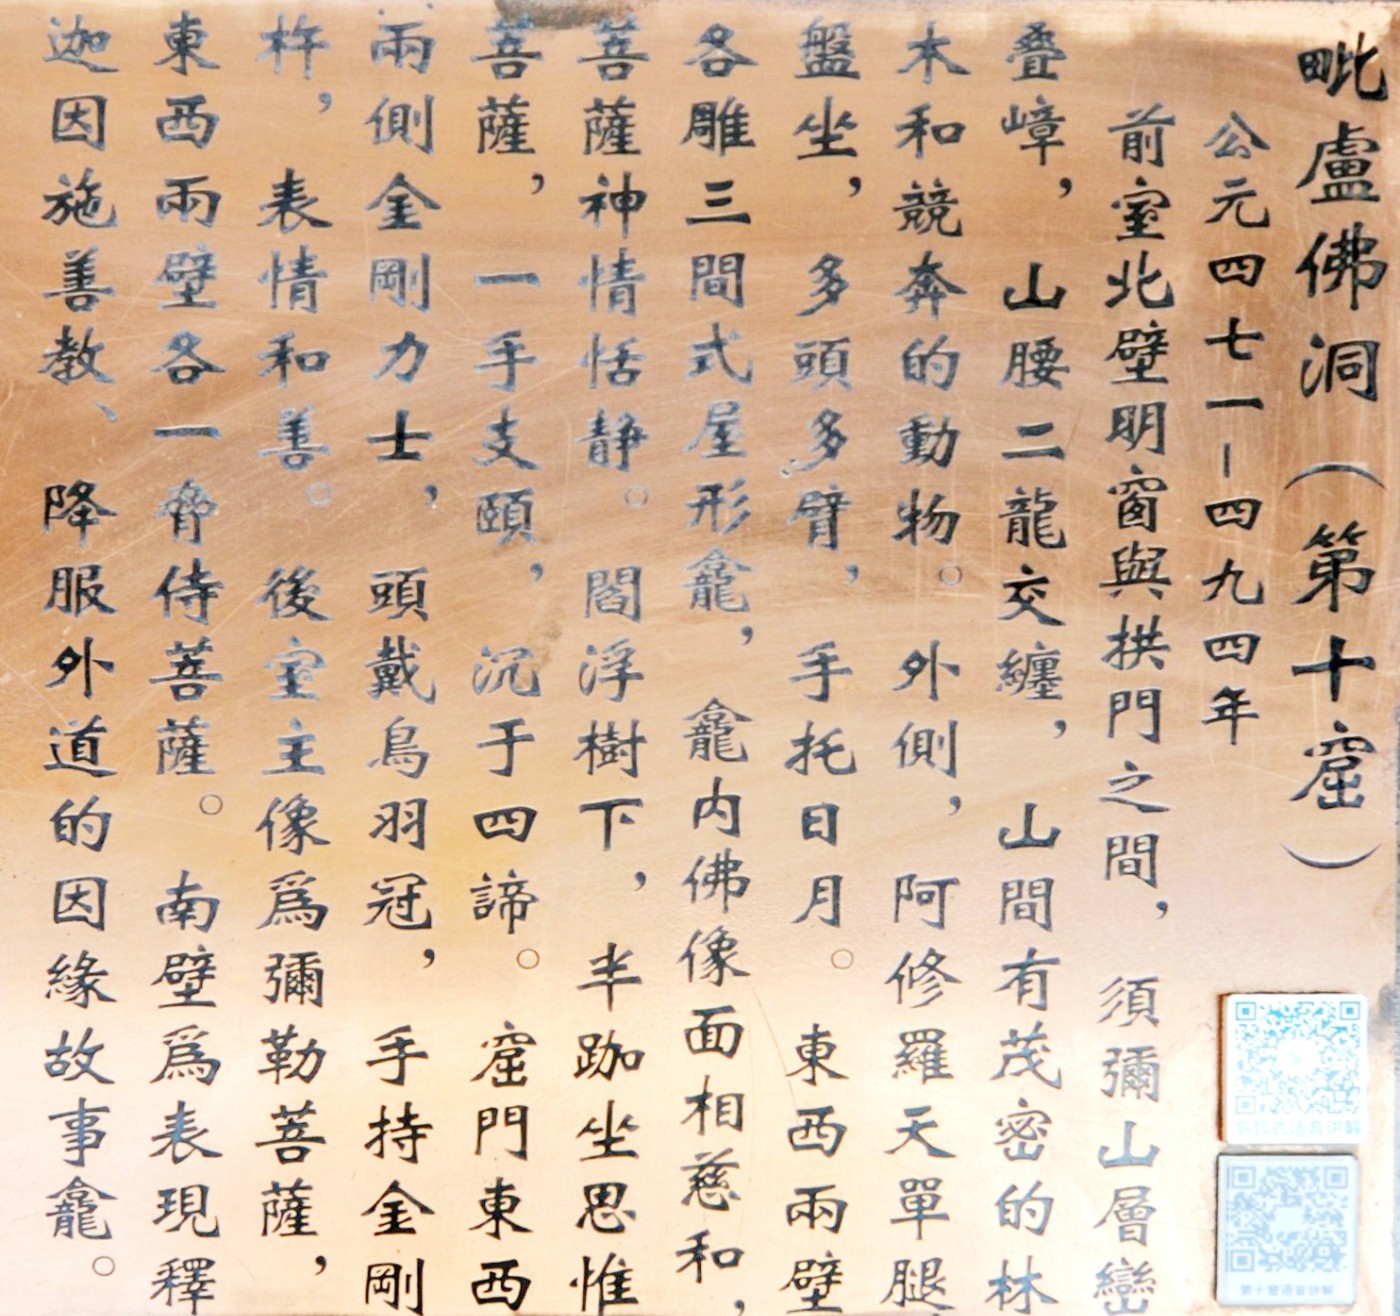 毗盧佛洞（第十窟）
公元四七一－四九四年
前室北壁明窗與拱門之間，須彌山層巒
叠嶂，山腰二龍交纏，山間有茂密的林
木和競奔的動物。外側，阿修羅天單腿
盤坐，多頭多臂，手托日月。東西兩壁
各雕三間式屋形龕，龕内佛像面相慈和，
菩薩神情恬静。閻浮樹下，半跏坐思惟
菩薩，一手支頤，沉于四諦。窟門東西
兩側金剛力士，頭戴鳥羽冠，手持金剛
杵，表情和善。後室主像爲彌勒菩薩，
東西兩壁各一脅侍菩薩。南壁爲表現釋
迦因施善教、降服外道的因緣故事龕。
第十窟语音讲解